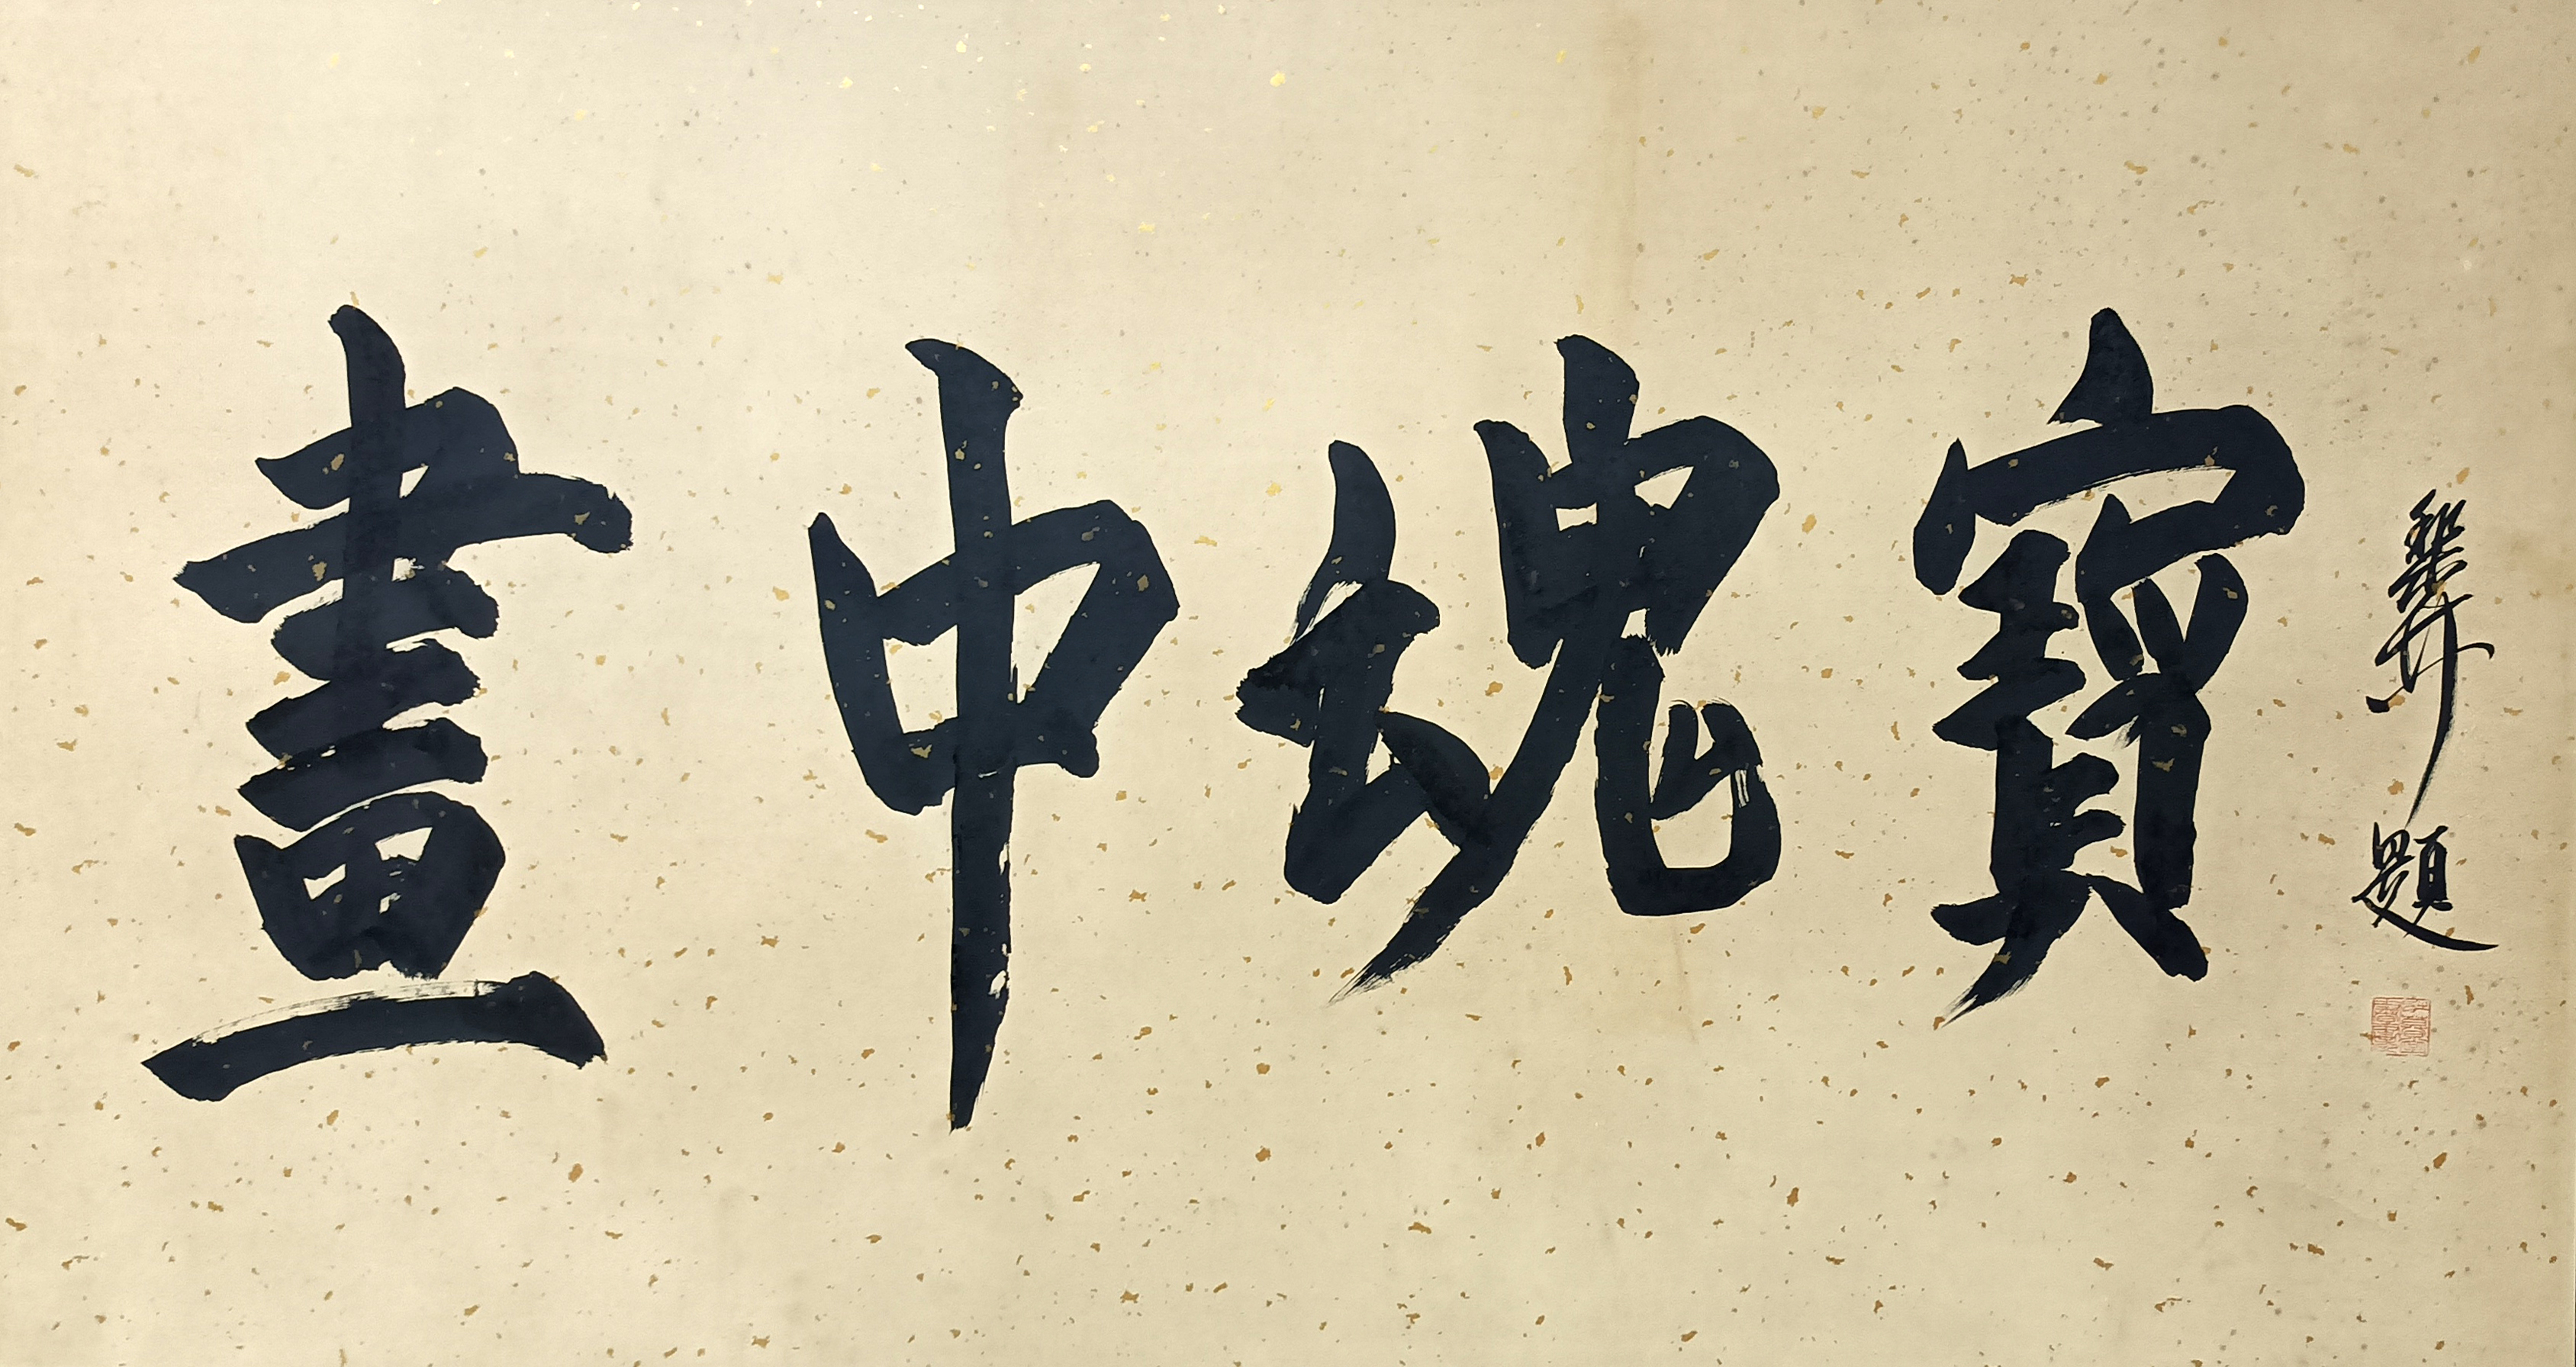 畫中瑰寶
題